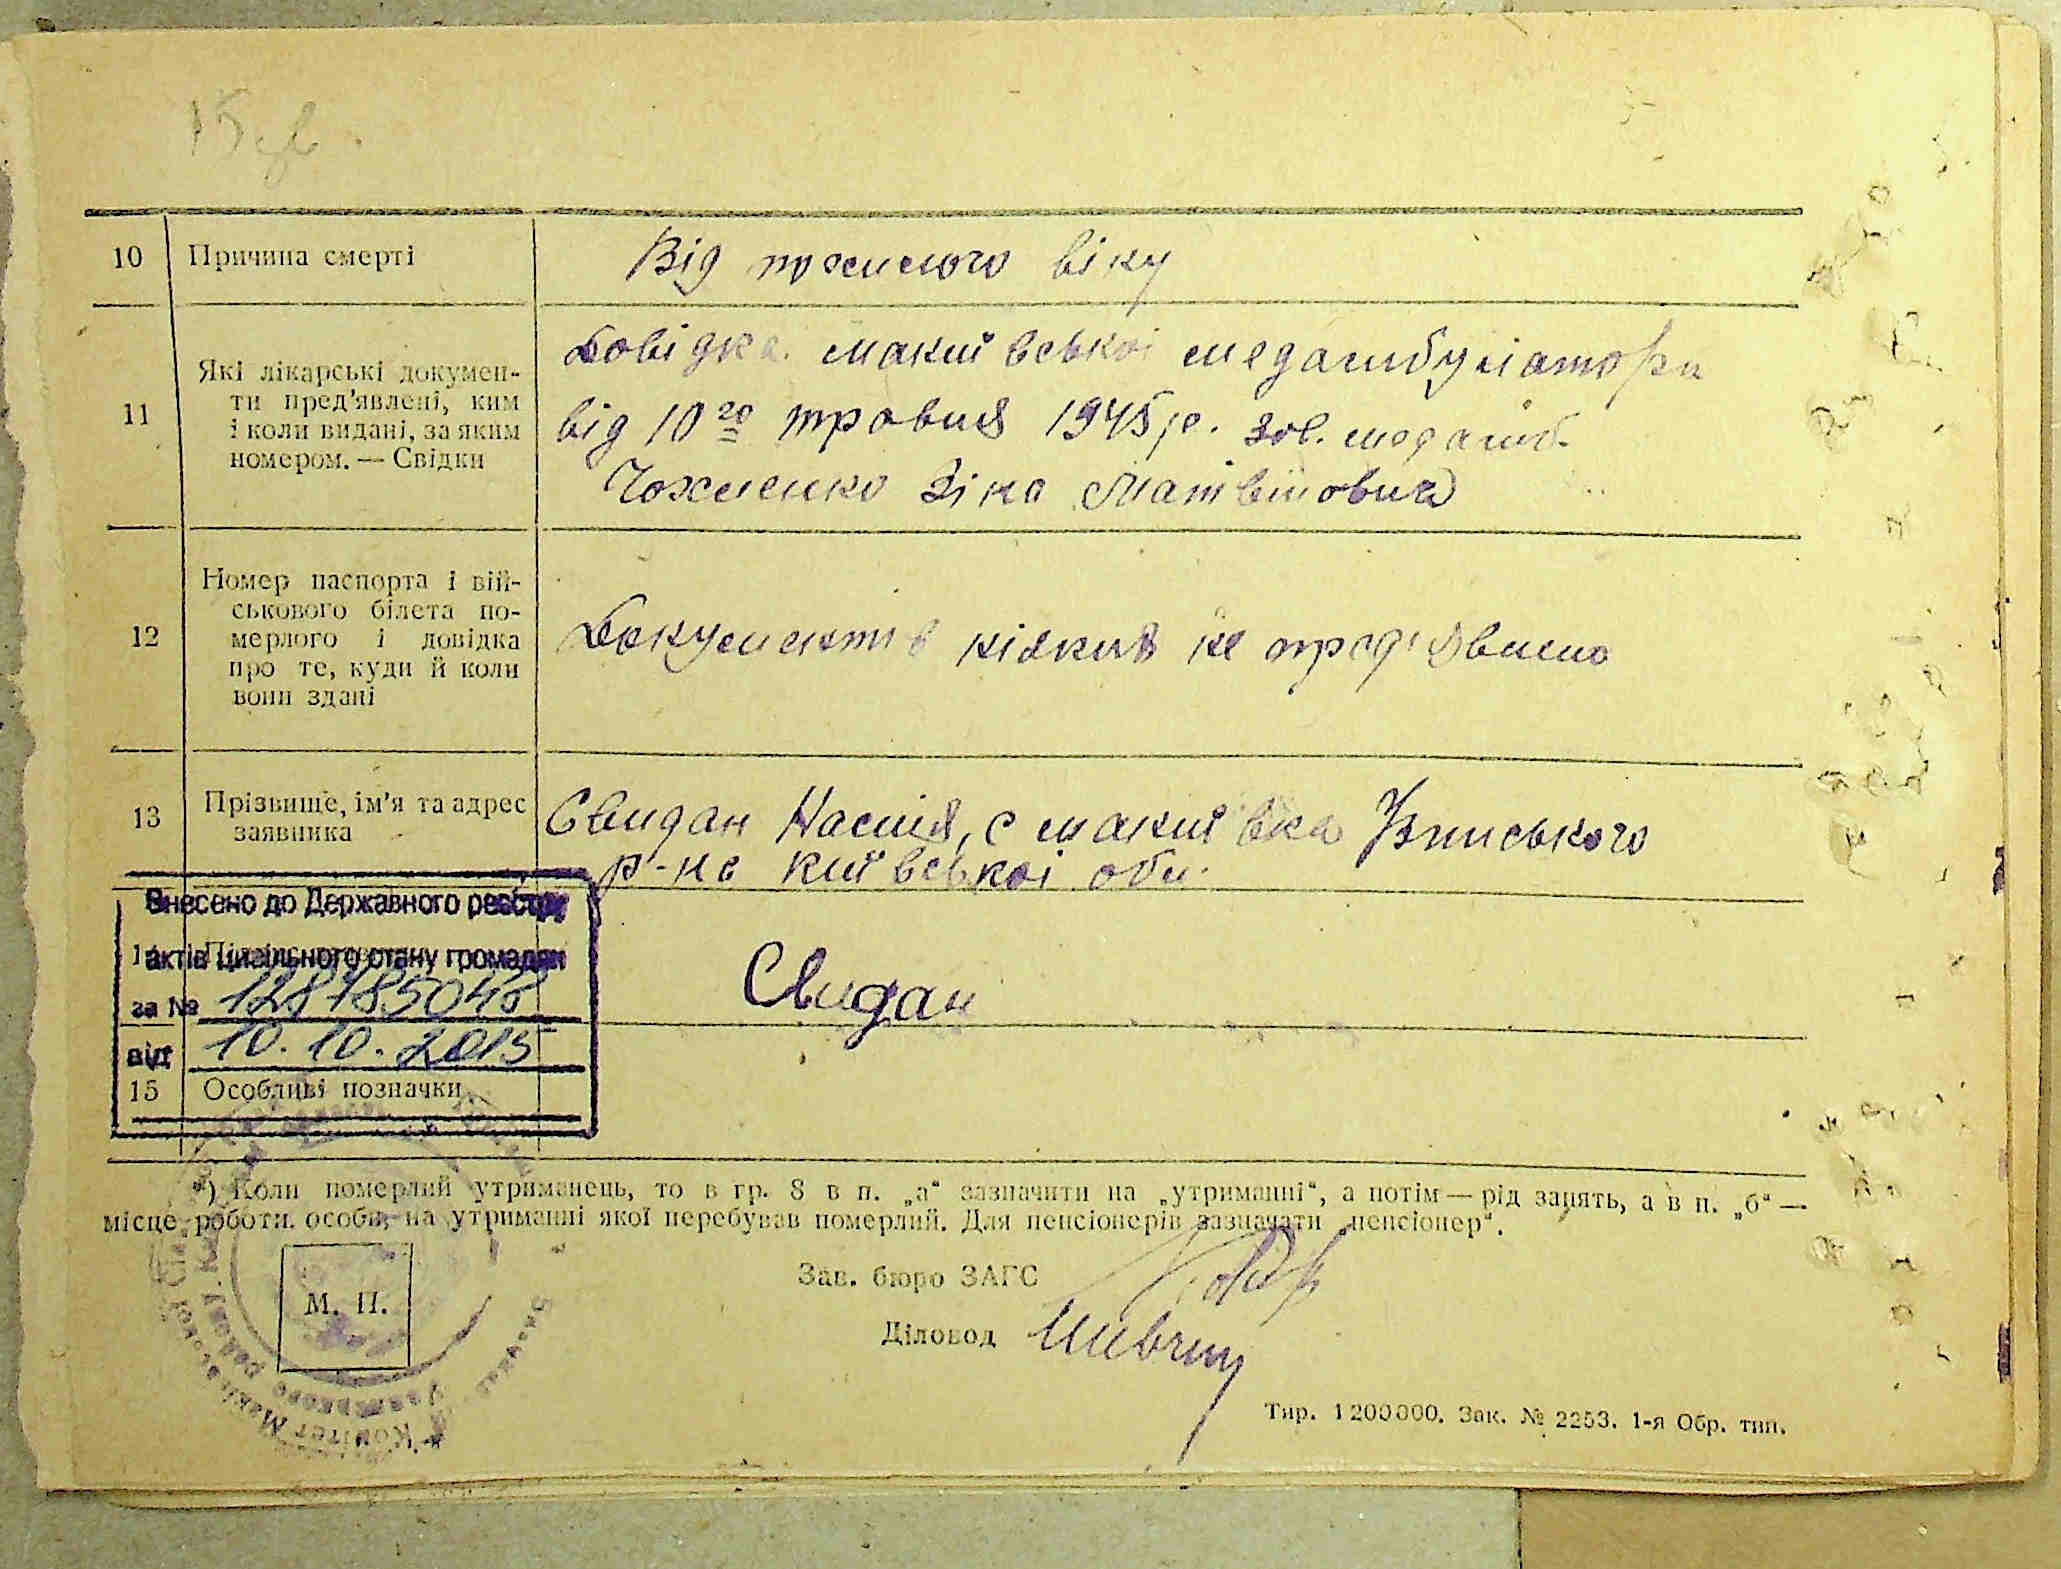 15 зв.
10 Причина смерті Від похилого віку
11 Які лікарські докумен-
ти пред'явлені, ким
і коли видані, за яким
номером. — Свідки
Довідка макиївської медамбулатори
від 10го травня 1945 р. зав. медамб.
Зіна Матвіївовна
12 Номер паспорта і вій-
ськового білета по-
мерлого і довідка
про те, куди й коли
вони здані
Документів ніяких не пред'явлено
13 Прізвище, ім'я та адрес
заявника
Свидан Настя, с макиївка
р-на київської обл.
Внесено до Державного реєстру
актів цивільного стану громадян
за №
від 10.10.2015
14 Свидан
15 Особливі позначки
*) Коли померлий утриманець, то в гр. 8 в п. „а“ зазначити на „утриманні“, а потім — рід занять, а в п. „б“ —
місце роботи особи, на утриманні якої перебував померлий. Для пенсіонерів зазначати „пенсіонер“.
Зав. бюро ЗАГС
М. П.
Діловод
Тир. 1200000. Зак. № 2253. 1-я Обр. тип.